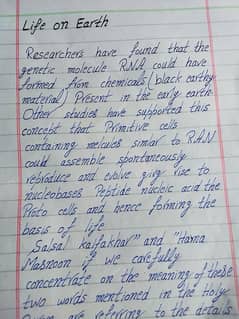 Life on Earth
Researchers have found that the
genetic molecule RNA could have
formed from chemicals (black earthy
material) Present in the early earth.
Other studies have supported this
concept that Primitive cells
containing melcules simiar to RAN
could assemble spontaneously
rebroduce and evolve give rise to
nucleobases Peptide nucleic acid the
Proto cells and hence forming the
basis of life
"Salsal kalfakhar" and "Hama
Masnoon if we carefully
concentrate on the meaning of these
two words mentioned in the Holy
Quran are referring to the details